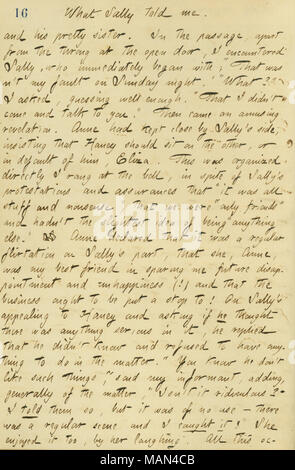 16 What Sally told me.
and his pretty sister. In the passage apart
from the throng at the open door, I encountered
Sally, who immediately began with; "That was
n't my fault on Sunday night." "What?"
I asked, guessing well enough. "That I didn't
come and talk to you." Then came an amusing
revelation. Anne had kept close by Sally's side,
insisting that Haney should sit on the other, or
in default of him, Eliza. This was organized
directly I rang at the bell, in spite of Sally's
protestations and assurances that "it was all
stuff and nonsense, that we were only friends
and hadn't the slightest idea of being anything
else." Anne declared that it was a regular
flirtation on Sally's part, that she, Anne,
was my best friend in sparing me future disap-
pointment and unhappiness (!) and that the
business ought to be put a stop to! On Sally's
appealing to Haney and asking if he thought
there was anything serious in it, he replied
that he didn't know and refused to have any
thing to do in the matter." You know he don't
like such things," said my informant, adding,
generally of the matter, "Isn't it ridiculous?
I told them so, but it was of no use — there
was a regular scene and I caught it"! She
enjoyed it too, by her laughing. All this oc-
alamy
Image ID: MAN4CB
www.alamy.com